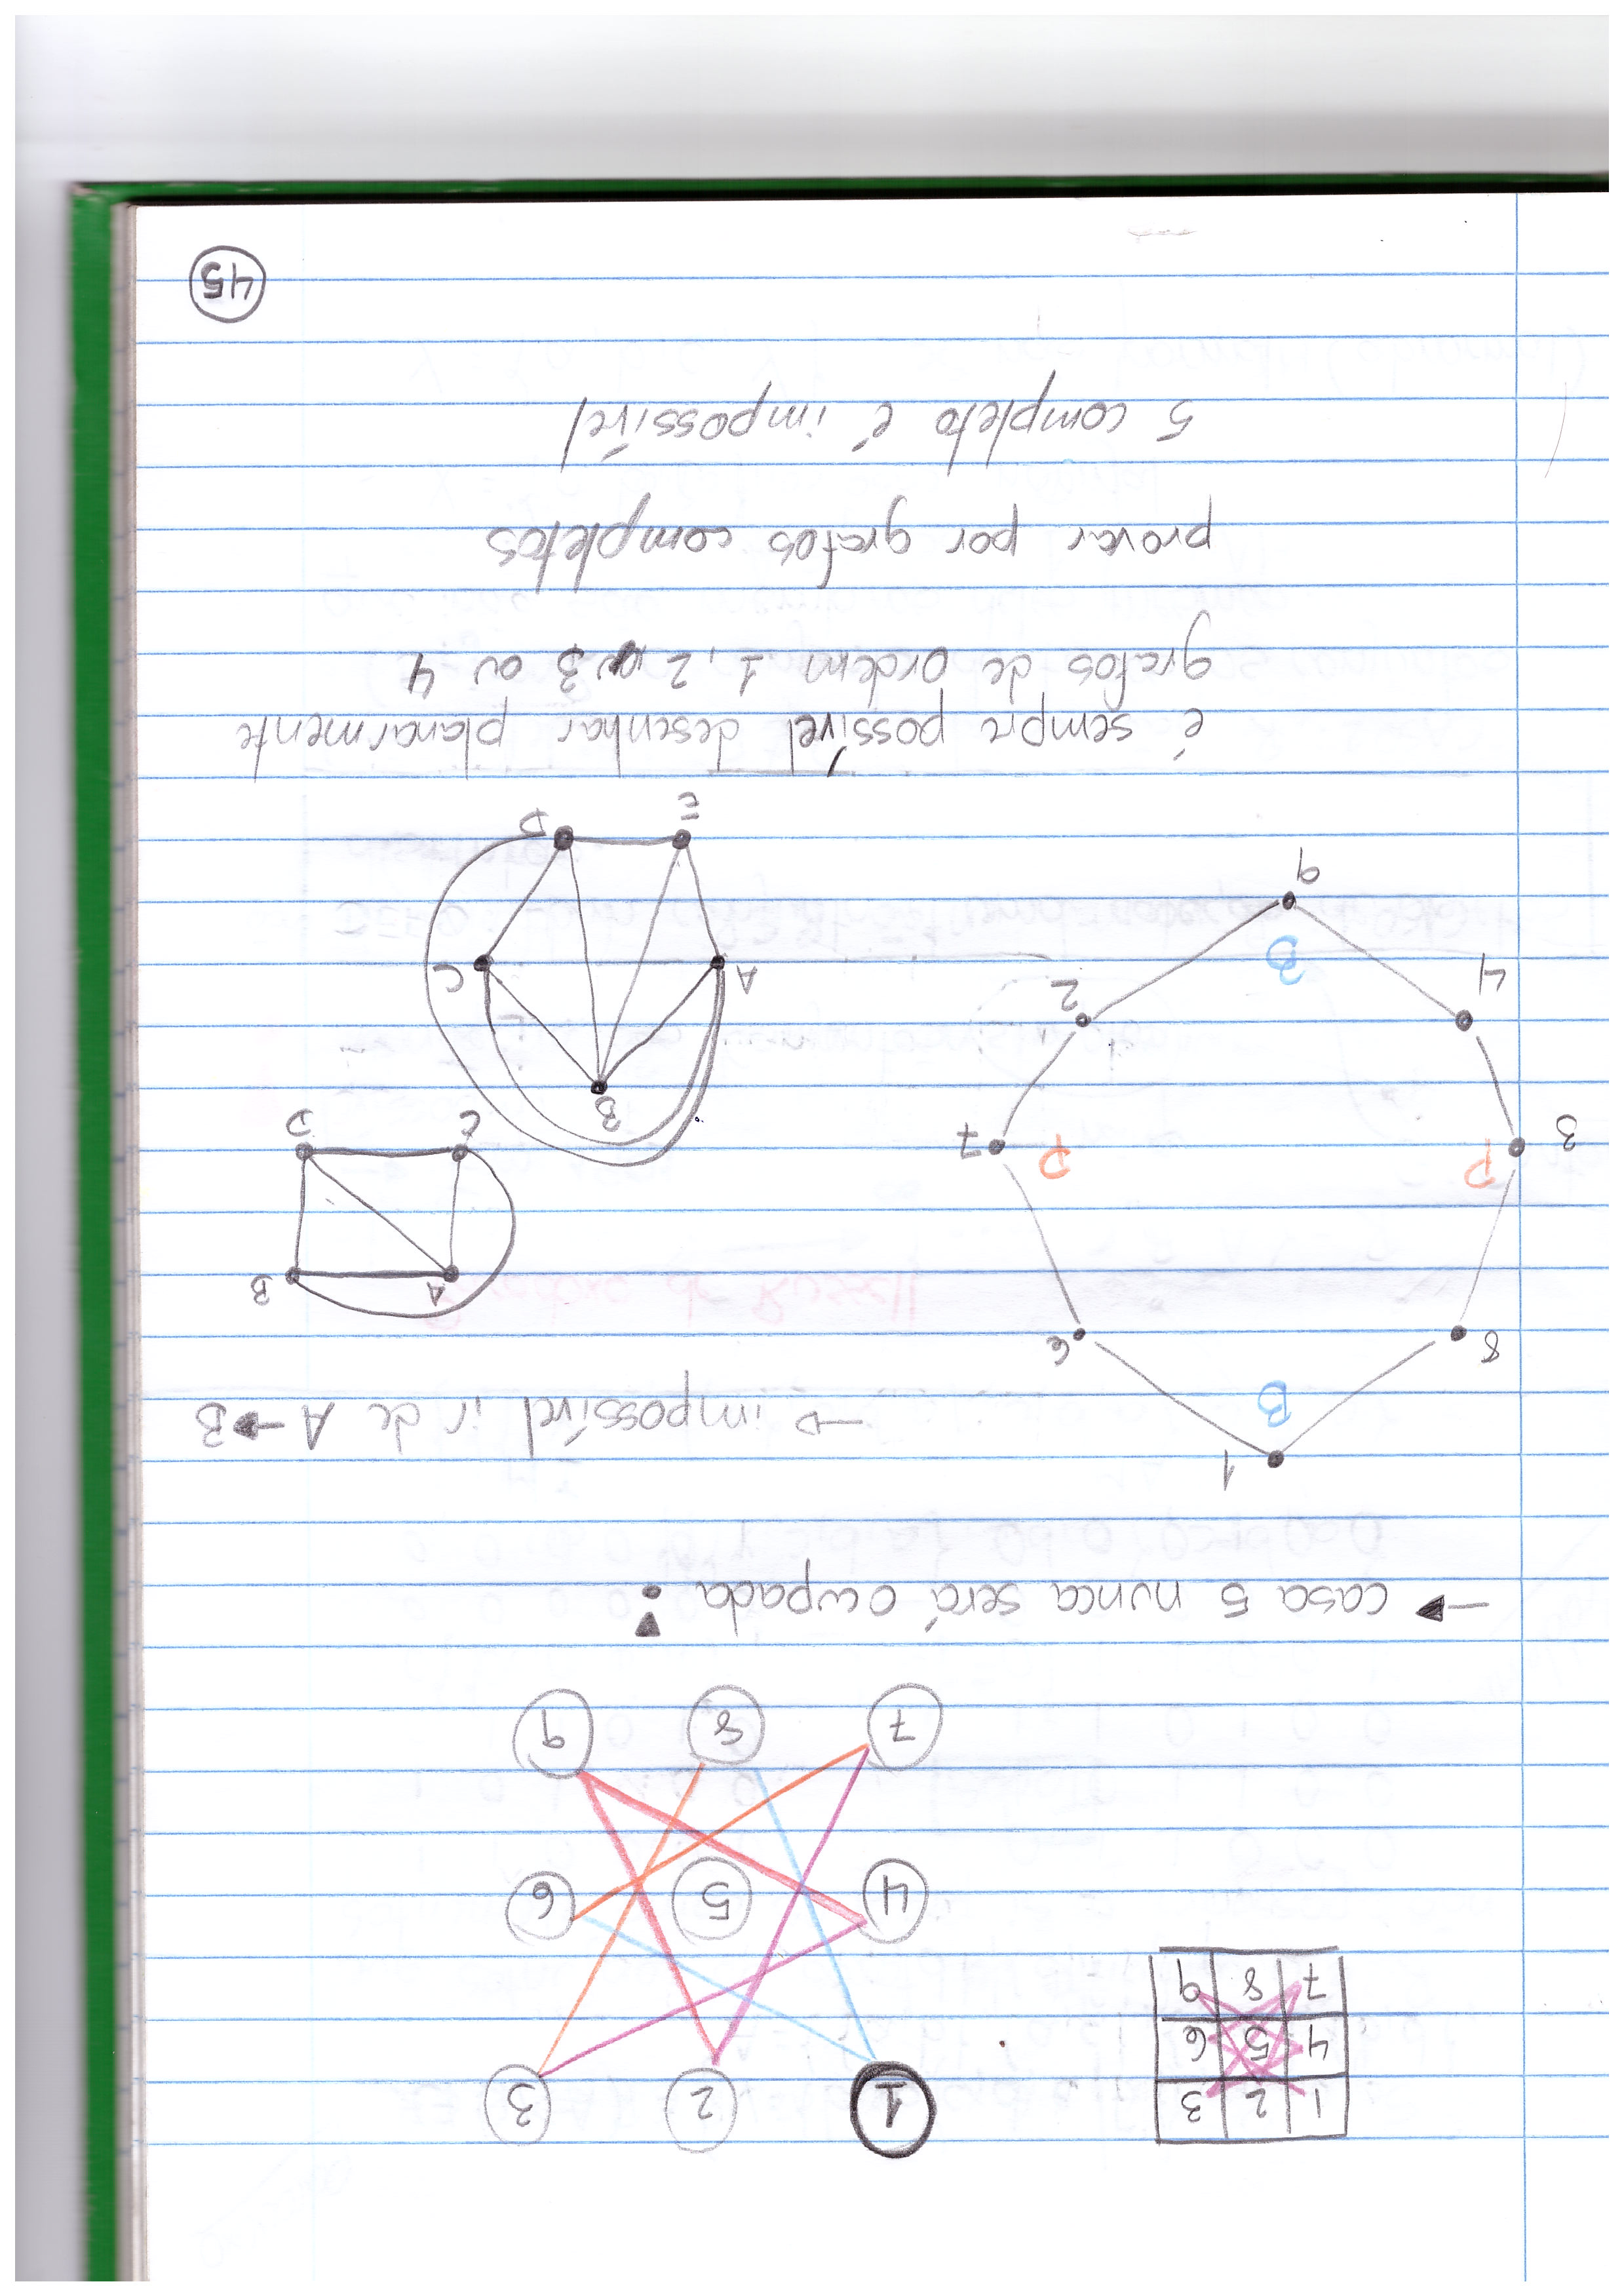 1 2 3
4 5 6
7 8 9
1 2 3
4 5 6
7 8 9
→ casa 5 nunca será ocupada!
1
B
8 6
→ impossível ir de A → B
3 P P 7
4 2
B
9
A B
C D
B
A C
E D
é sempre possível desenhar planarmente
grafos de ordem 1, 2 ou 3 ou 4
provar por grafos completos
5 completo é impossível
45